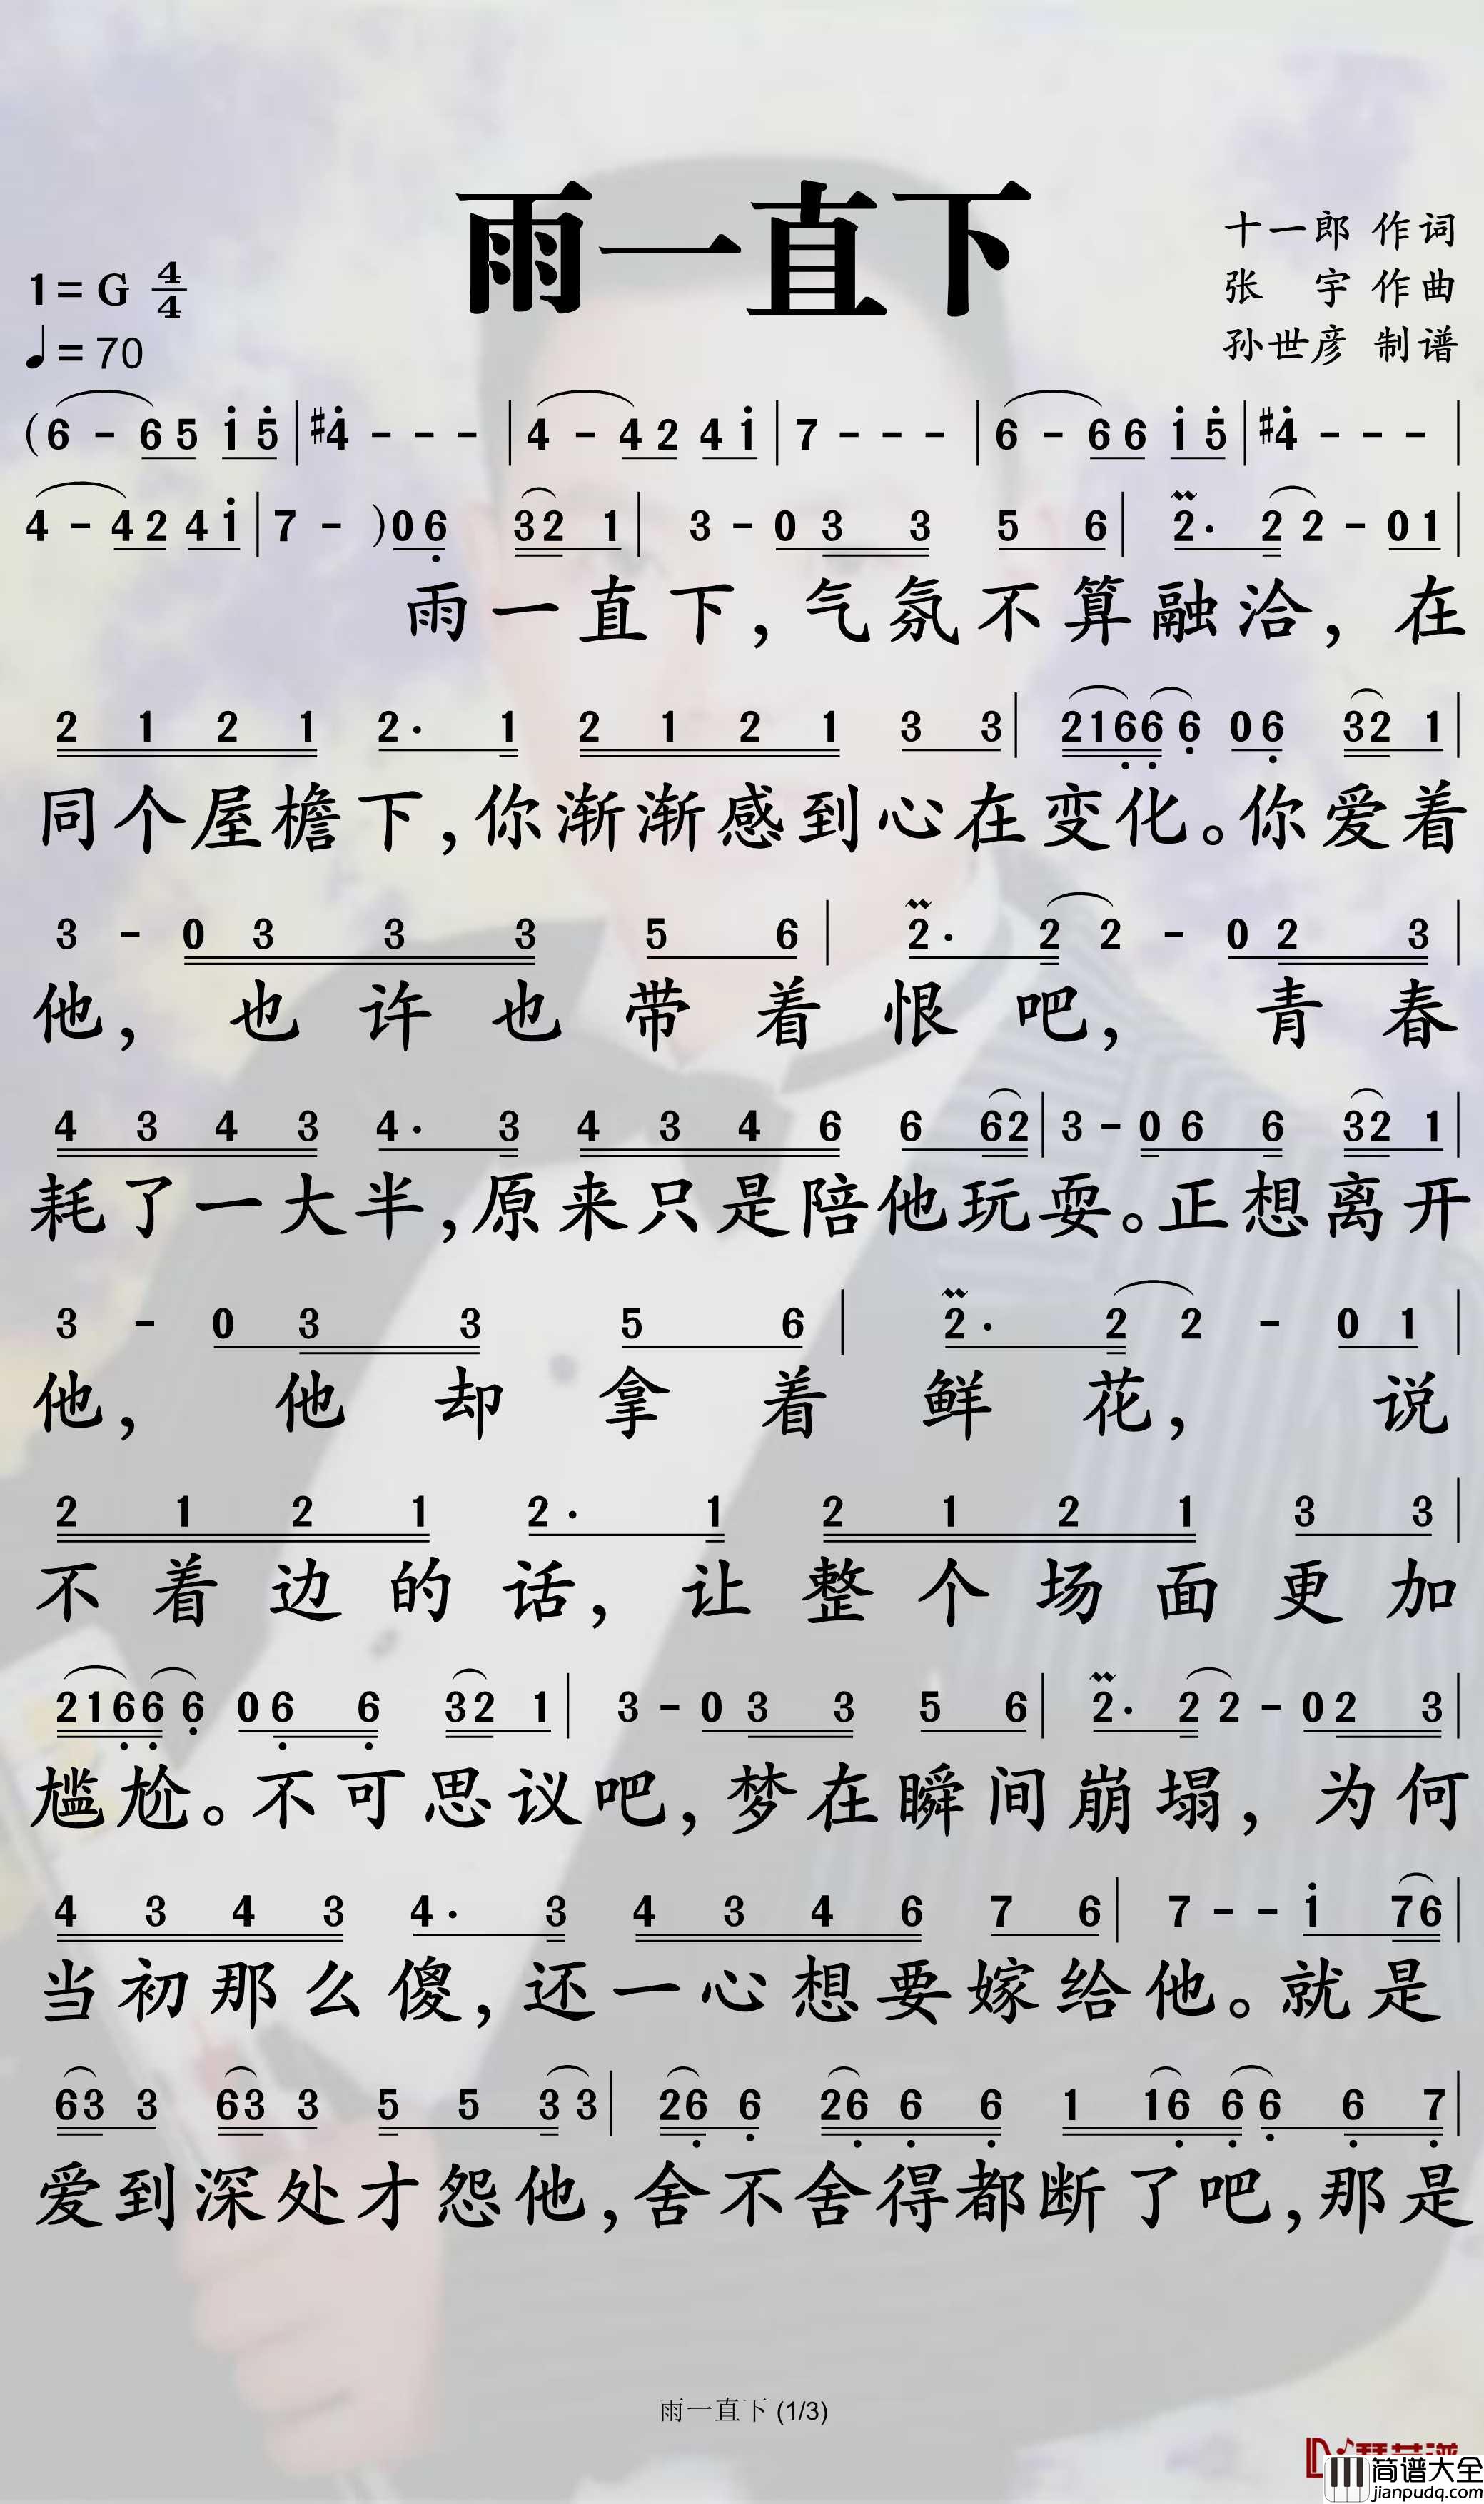 雨一直下
十一郎 作词
张 宇 作曲
孙世彦 制谱
1=G 4/4
♩=70
(6 - 6 5 1 5 | #4 - - - | 4 - 4 2 4 1 | 7 - - - | 6 - 6 6 1 5 | #4 - - - |
4 - 4 2 4 1 | 7 - ) 0 6 3 2 1 | 3 - 0 3 3 5 6 | 2 · 2 2 - 0 1 |
雨一直下，气氛不算融洽，在
2 1 2 1 2 · 1 2 1 2 1 3 3 | 2 1 6 6 6 0 6 3 2 1 |
同个屋檐下，你渐渐感到心在变化。你爱着
3 - 0 3 3 3 5 6 | 2 · 2 2 - 0 2 3 |
他，也许也带着恨吧，青春
4 3 4 3 4 · 3 4 3 4 6 6 6 2 | 3 - 0 6 6 3 2 1 |
耗了一大半，原来只是陪他玩耍。正想离开
3 - 0 3 3 5 6 | 2 · 2 2 - 0 1 |
他，他却拿着鲜花，说
2 1 2 1 2 · 1 2 1 2 1 3 3 |
不着边的话，让整个场面更加
2 1 6 6 6 0 6 6 3 2 1 | 3 - 0 3 3 5 6 | 2 · 2 2 - 0 2 3 |
尴尬。不可思议吧，梦在瞬间崩塌，为何
4 3 4 3 4 · 3 4 3 4 6 7 6 | 7 - - 1 7 6 |
当初那么傻，还一心想要嫁给他。就是
6 3 3 6 3 3 5 5 3 3 | 2 6 6 2 6 6 6 1 1 6 6 6 6 7 |
爱到深处才怨他，舍不舍得都断了吧，那是
雨一直下 (1/3)
简谱大全
jianpudq.com